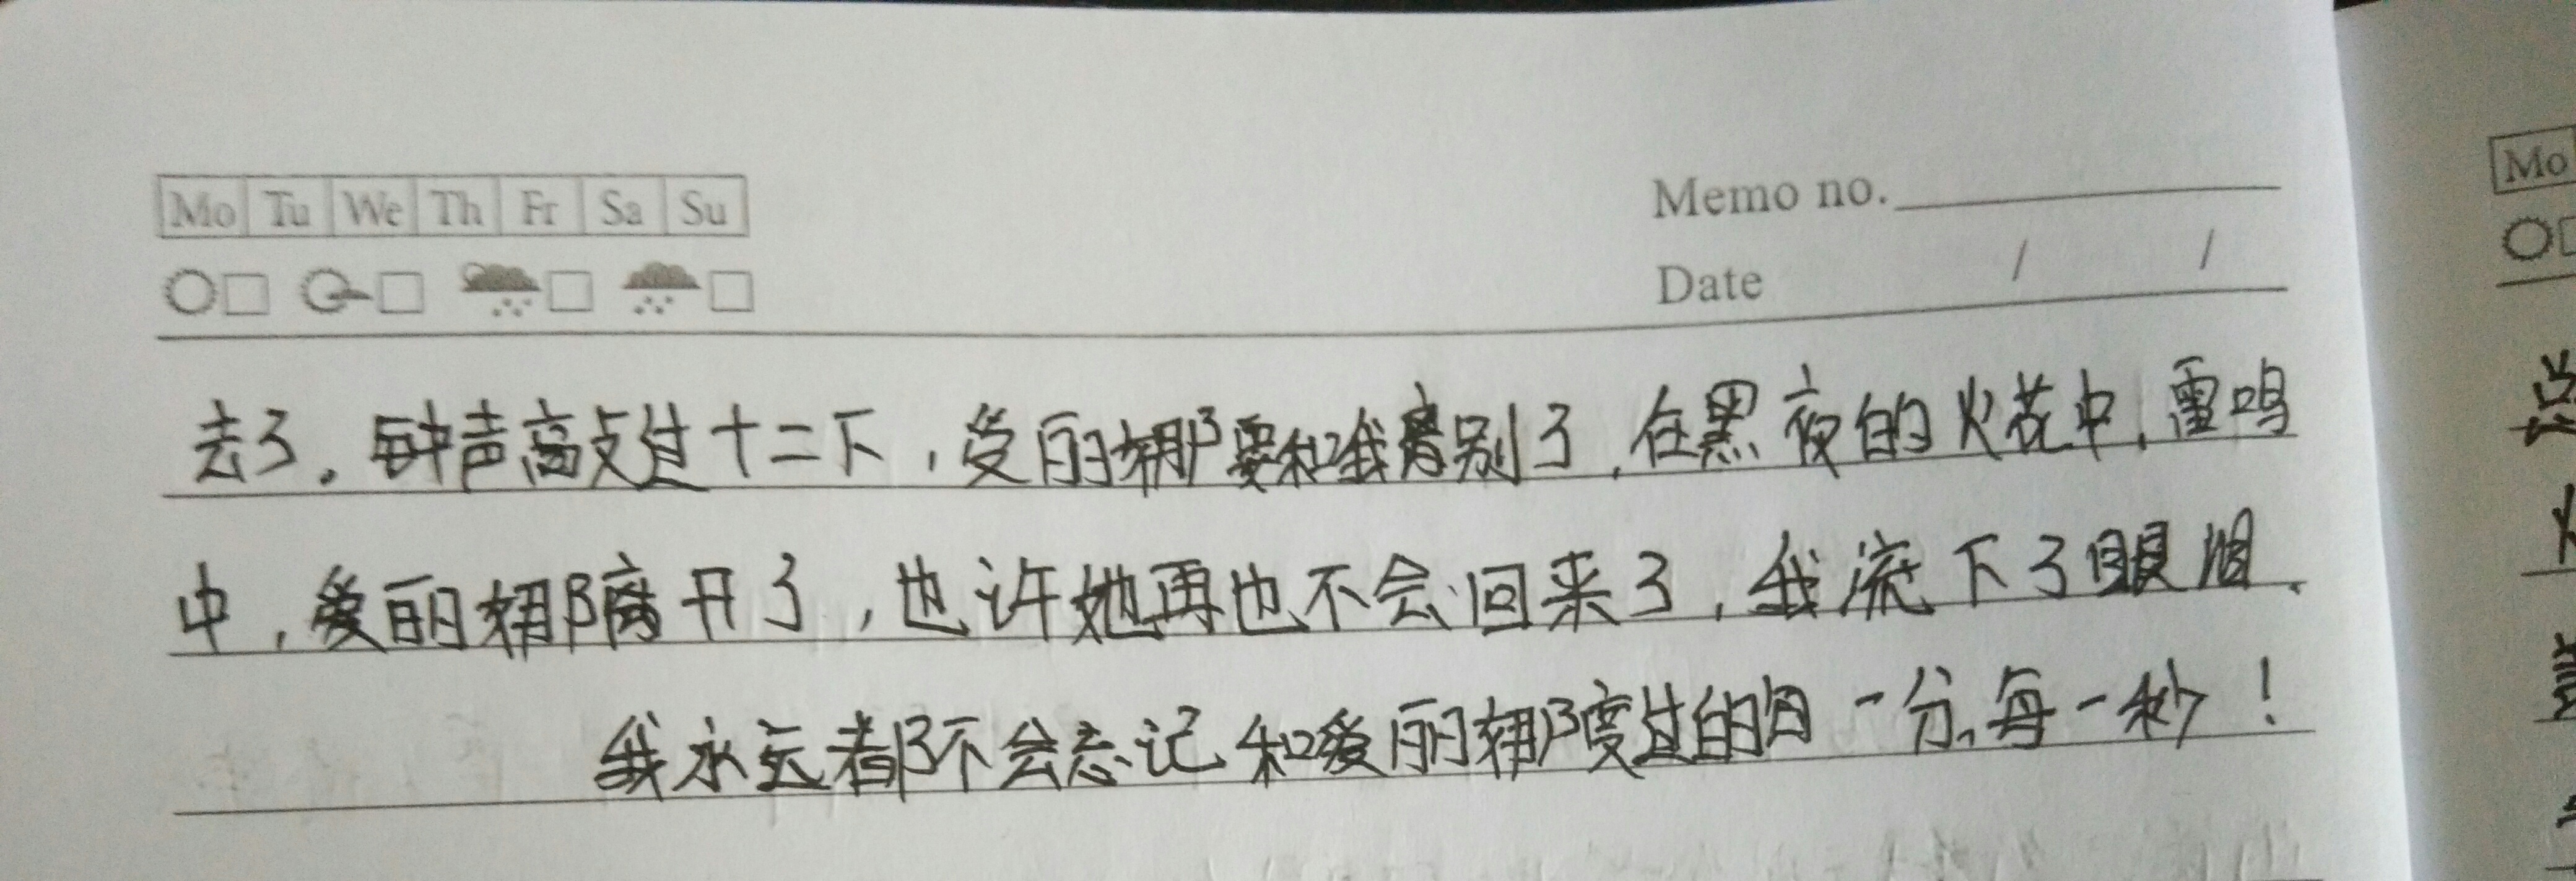 Mo Tu We Th Fr Sa Su
Memo no.
Date / /
去了。钟声高敲过十二下，爱丽娜要和我离别了，在黑夜的火花中，雷鸣
中，爱丽娜离开了，也许她再也不会回来了，我流下了眼泪。
我永远都不会忘记和爱丽娜度过的每一分，每一秒！
Mo